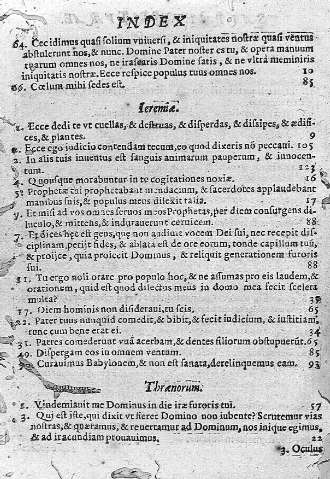 INDEX
64. Cecidimus quasi folium vniuersi, & iniquitates nostræ quasi ventus
abstulerunt nos, & nunc Domine Pater noster es tu, & opera manuum
tuarum omnes nos, ne irascaris Domine satis, & ne vltra memineris
iniquitatis nostræ. Ecce respice populus tuus omnes nos. 10
66. Cœlum mihi sedes est. 85
Ieremiæ.
1. Ecce dedi te vt euellas, & destruas, & disperdas, & dissipes, & ædifi-
ces, & plantes. 9
2. Ecce ego iudicio contendam tecum, eo quod dixeris nõ peccaui. 105
2. In alis tuis inuentus est sanguis animarum pauperum, & innocen-
tum. 123
4. Quousque morabuntur in te cogitationes noxiæ. 16
5. Prophetæ prophetabant mendacium, & sacerdotes applaudebant
manibus suis, & populus meus dilexit talia. 17
7. Et misi ad vos omnes seruos meos Prophetas, per diem consurgens di-
luculo, & mittens, & indurauerunt ceruicem. 88
7. Et dices hæc est gens, quæ non audiuit vocem Dei sui, nec recepit dis-
ciplinam, perijt fides, & ablata est de ore eorum, tonde capillum tuũ,
& proijce, quia proiecit Dominus, & reliquit generationem furoris
sui. 88
11. Tu ergo noli orare pro populo hoc, & ne assumas pro eis laudem, &
orationem, quid est quod dilectus meus in domo mea fecit scelera
multa? 39
17. Diem hominis non desideraui, tu scis. 65
22. Pater tuus nunquid comedit, & bibit, & fecit iudicium, & iustitiam,
tunc cum bene erat ei. 34
31. Patres comederunt vuã acerbam, & dentes filiorum obstupuerũt. 65
49. Dispergam eos in omnem ventum. 85
51. Curauimus Babylonem, & non est sanata, derelinquemus eam. 93
Threnorum.
2. Vindemiauit me Dominus in die iræ furoris sui. 57
3. Quis est iste, qui dixit vt fieret Domino non iubente? Scrutemur vias
nostras, & quæramus, & reuertamur ad Dominum, nos inique egimus,
& ad iracundiam prouauimus. 22
3. Oculus